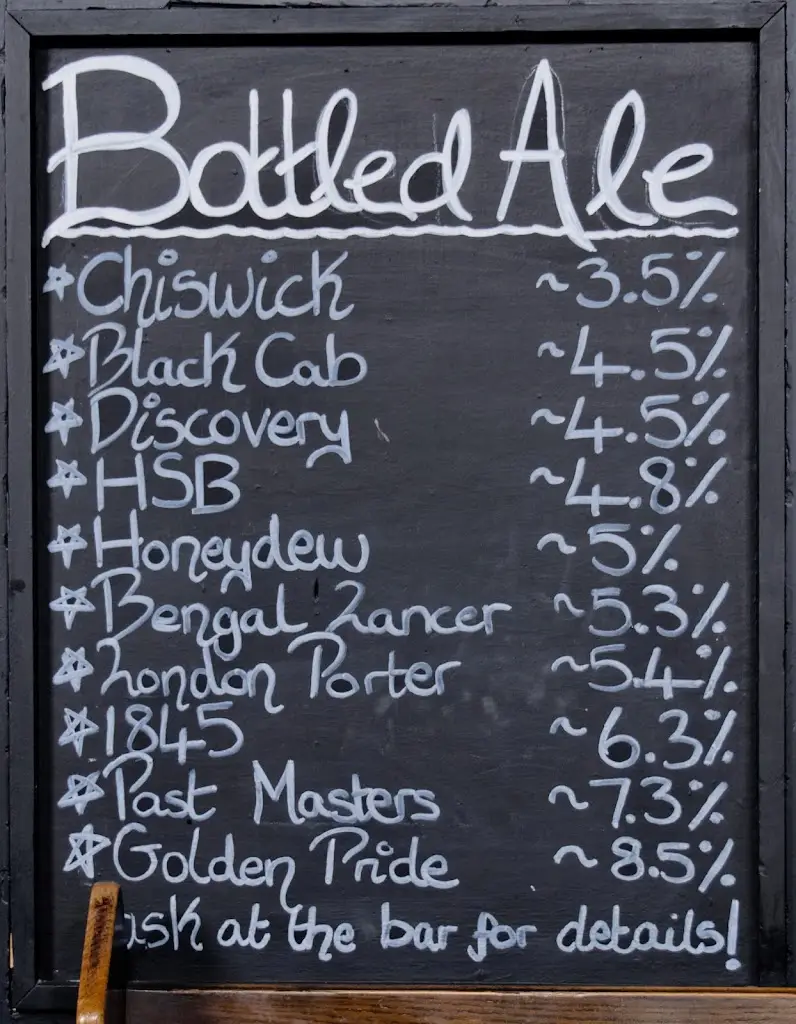 Bottled Ale
☆ Chiswick ~3.5%
☆ Black Cab ~4.5%
☆ Discovery ~4.5%
☆ HSB ~4.8%
☆ Honeydew ~5%
☆ Bengal Lancer ~5.3%
☆ London Porter ~5.4%
☆ 1845 ~6.3%
☆ Past Masters ~7.3%
☆ Golden Pride ~8.5%
ask at the bar for details!